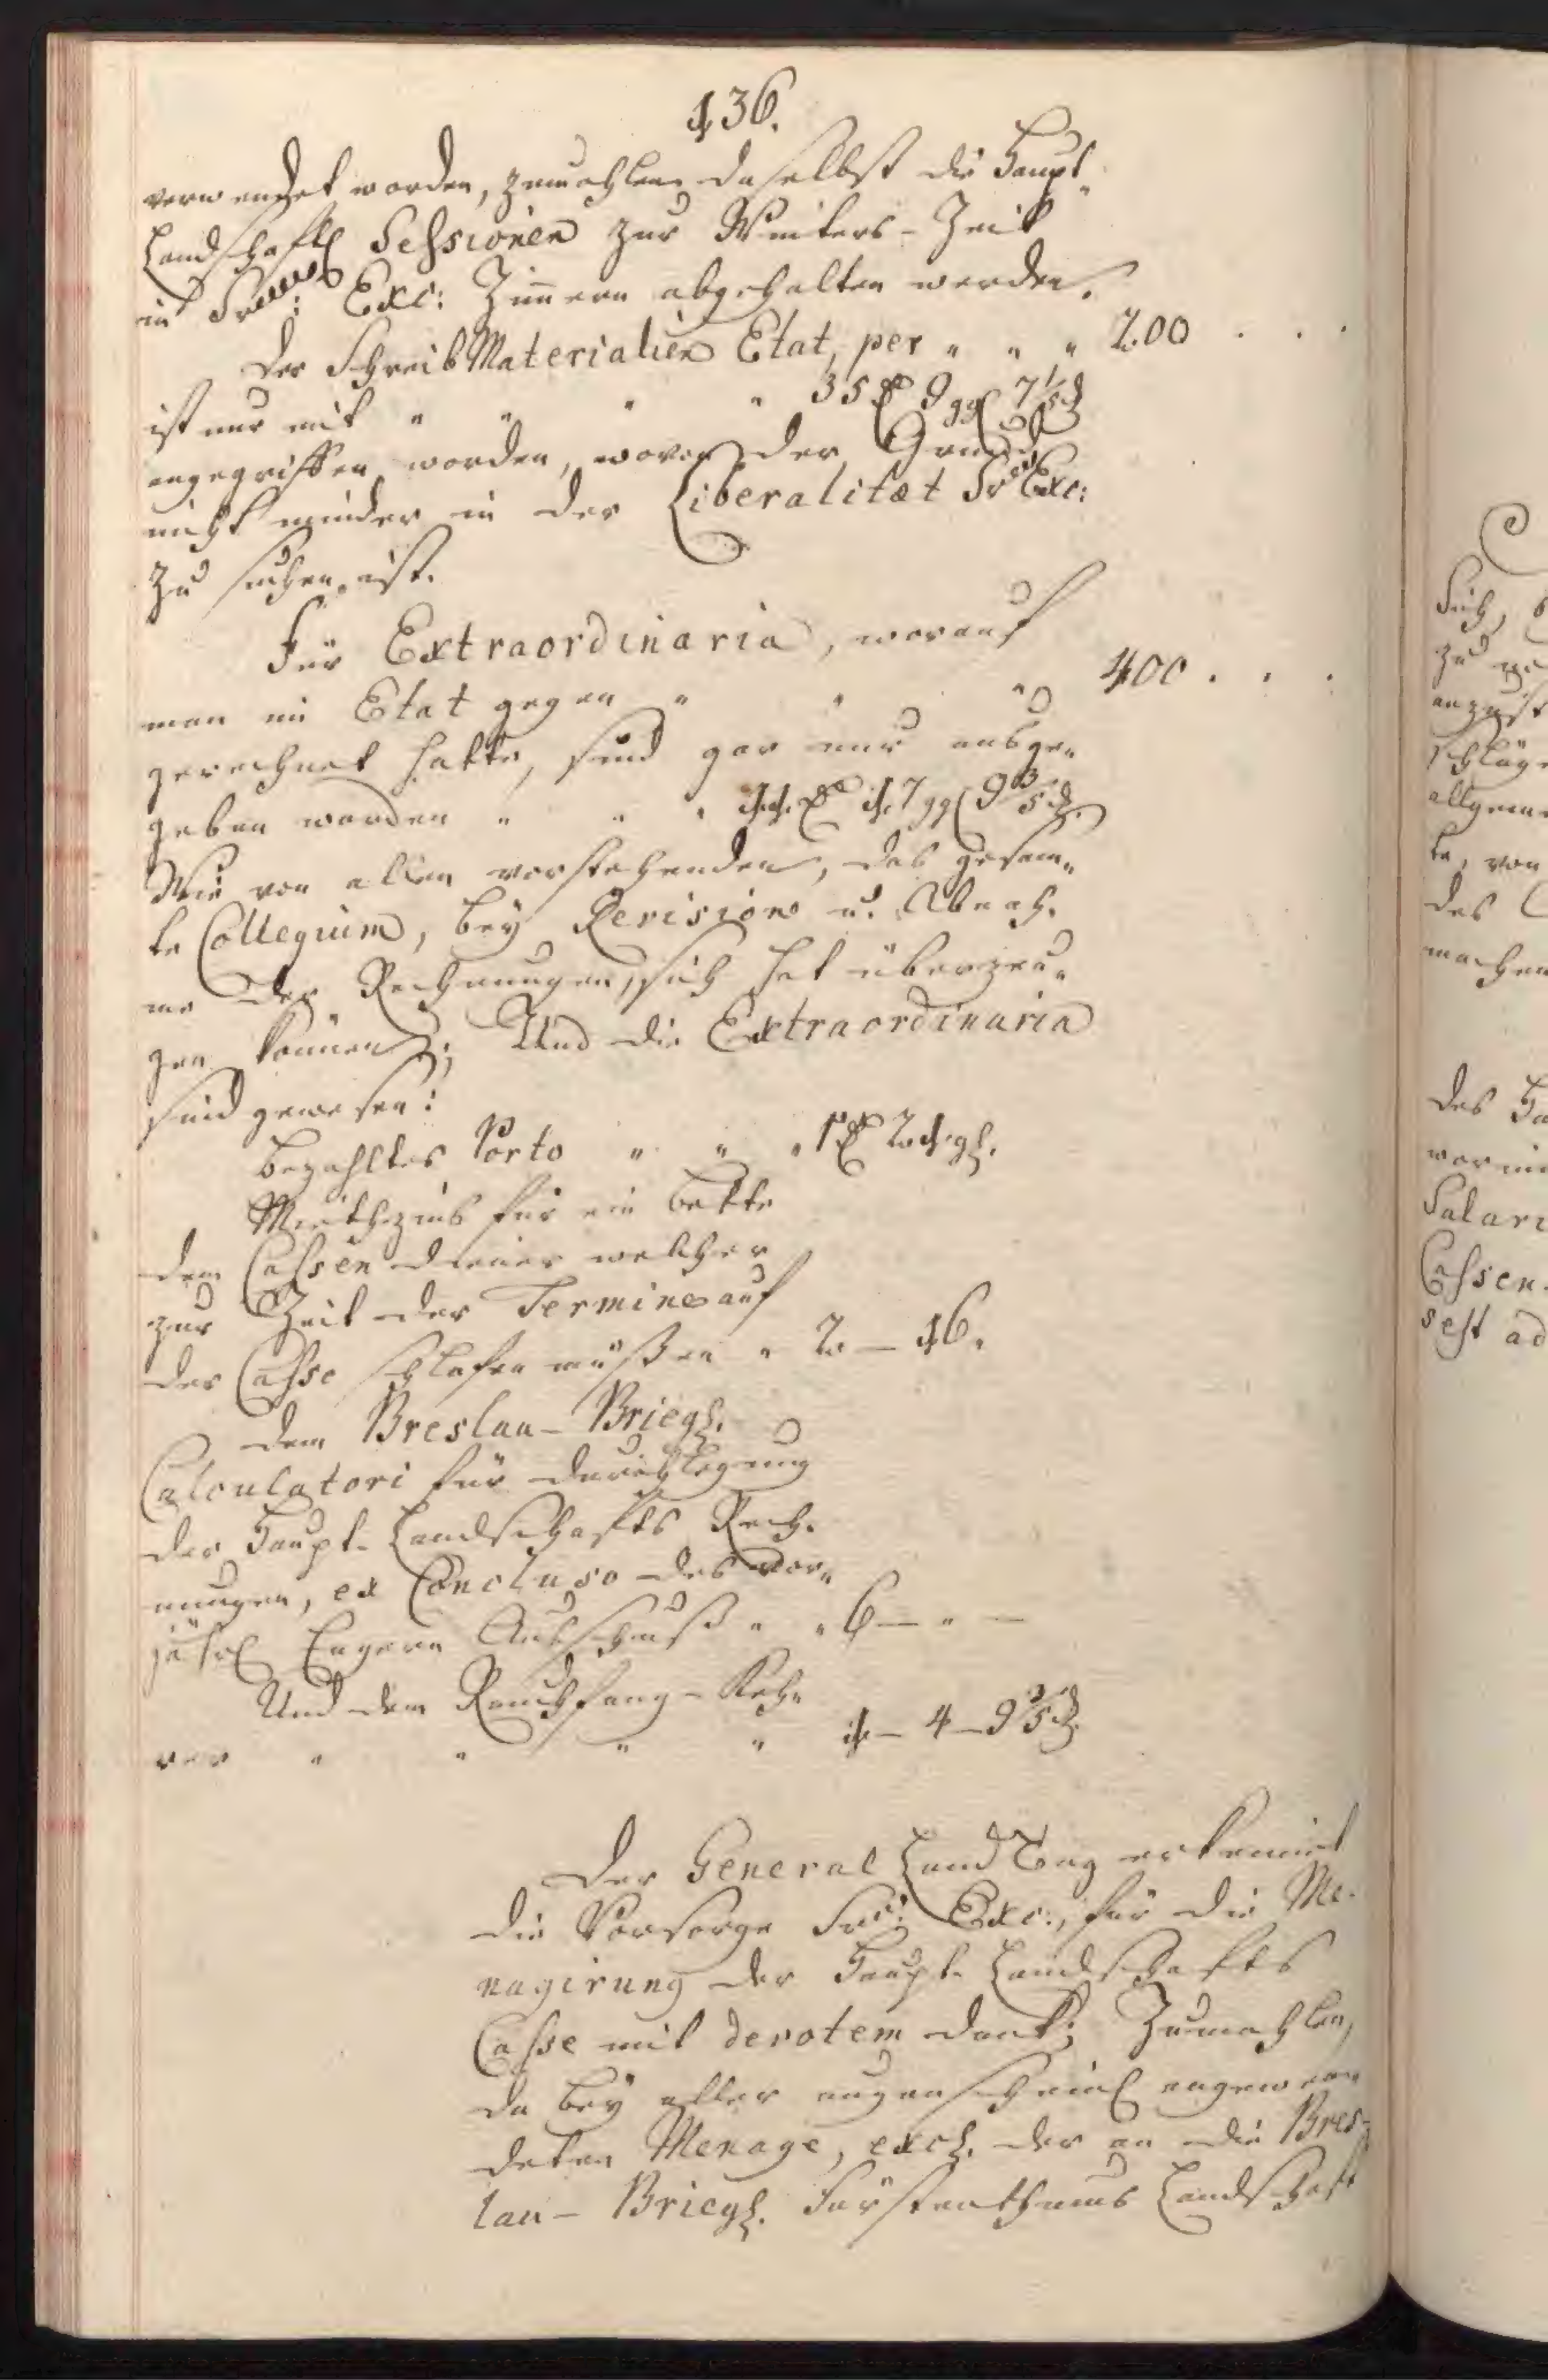 136.
verwendet worden, zumahlen daselbst die Haupt-
Landschaftl Sessionen zur Winters-Zeit
in Exc: Zimmern abgehalten werden.
Der Schreib Materialien Etat, per " " " 200 . . .
ist nur mit " " " " 35 9 ggl 7 1/5 d
angegriffen worden, wovon der Grund
nicht minder in der Liberalitæt Sr Exc:
zu suchen ist.
Für Extraordinaria, worauf
man im Etat gegen " " " 400 . . .
gerechnet hatte, sind gar nur ausge-
geben worden " " " 11 17 ggl 9 3/5 d.
Wie von allen vorstehenden, das gesam-
te Collegium, bey Revision u. Abnah-
me der Rechnungen, sich hat überzeu-
gen können; Und die Extraordinaria
sind gewesen:
bezahltes Porto " " " 1 21 gl.
Miethzins für ein Bette
dem Cassendiener welcher
zur Zeit der Termine auf
der Casse schlafen müßen " 2 — 16.
dem Breslau-Briegl.
Calculatori für Durchlegung
der Haupt-Landschafts Rech-
nungen, ex Concluso des vor-
jährl Engern Ausschuß " " 6 — " —
Und dem Rauchfang-Keh-
rer " " " " 1 — 4 — 9 3/5 d.
Der General Land Tag erkennet
die Vorsorge Sr: Exc:, für die Me-
nagirung der Haupt-Landschafts
Casse mit devotem Dank; Zumahlen,
da bey aller augenscheinl angewen-
deten Menage, excl. der an die Bres-
lau-Briegl. Fürstenthums Landschaft